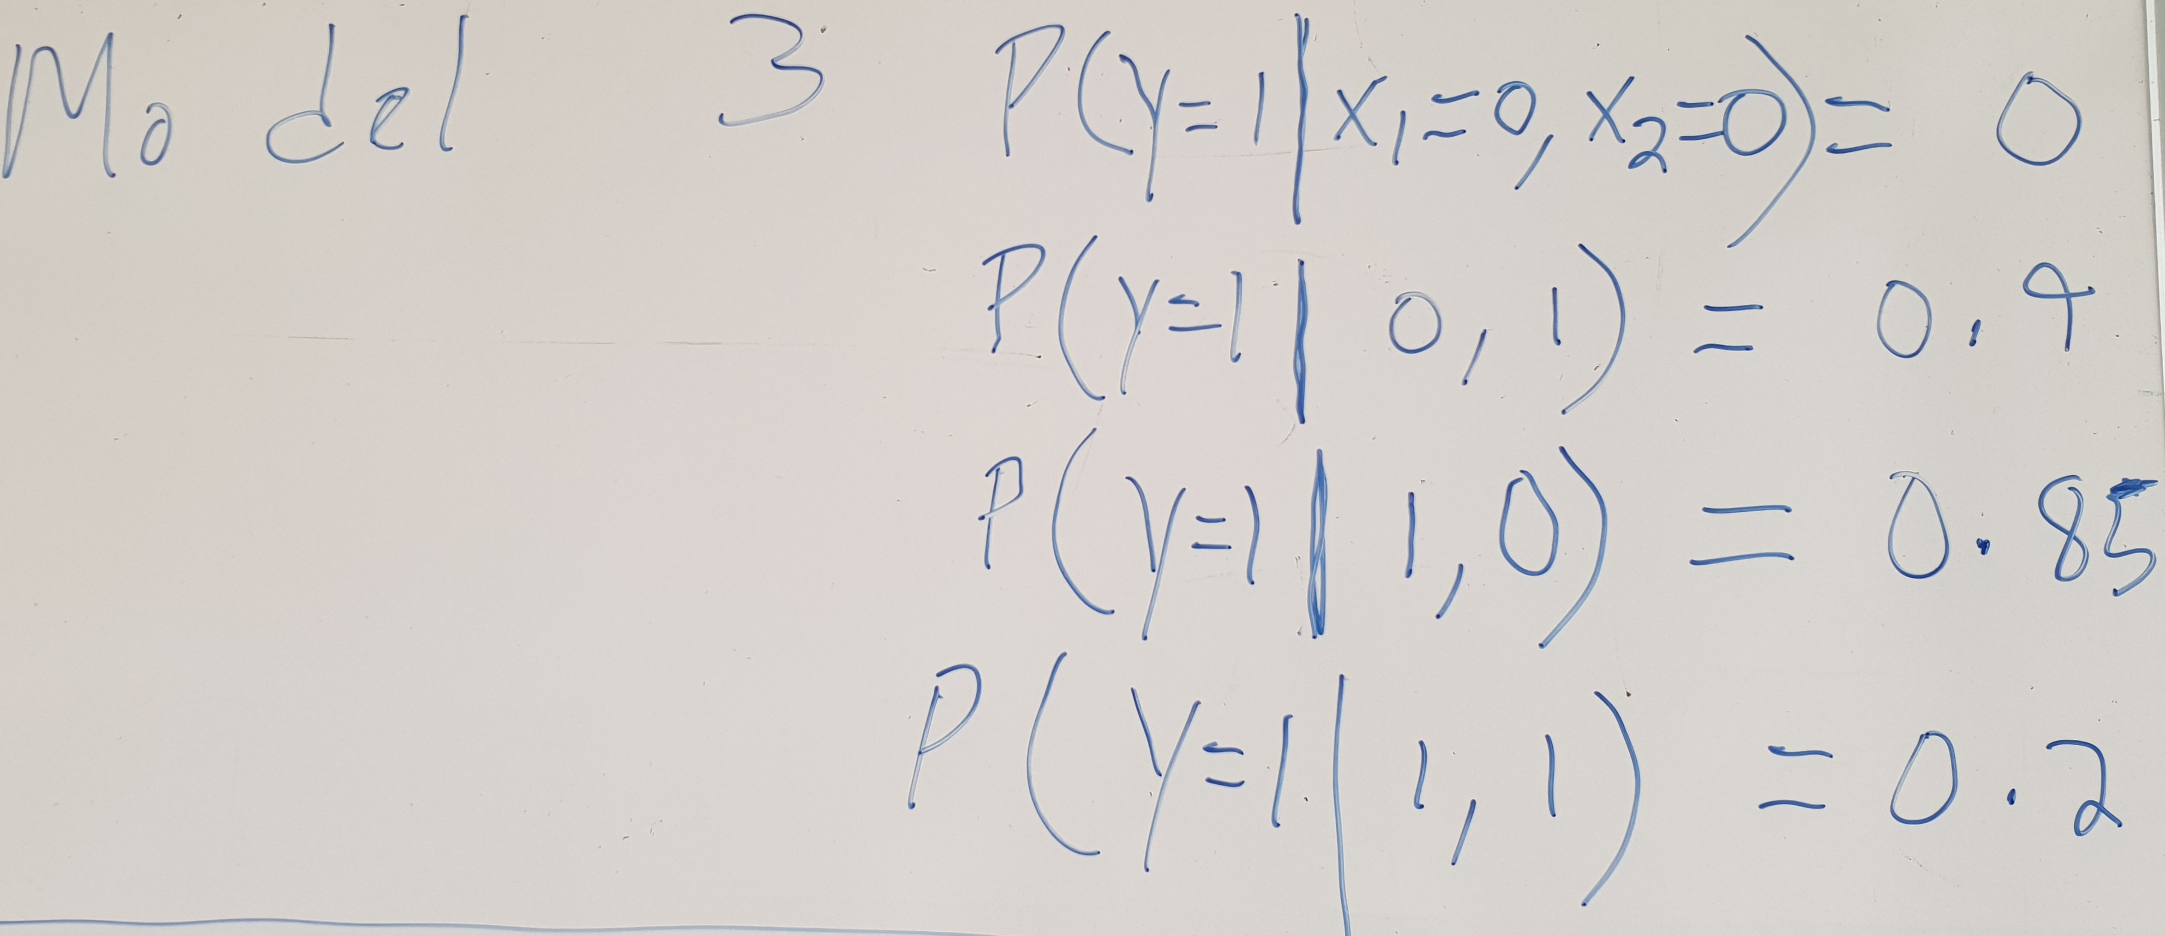 Model 3 P(Y=1|X₁=0, X₂=0)= 0
P(Y=1| 0, 1) = 0.9
P(Y=1| 1, 0) = 0.85
P(Y=1| 1, 1) = 0.2